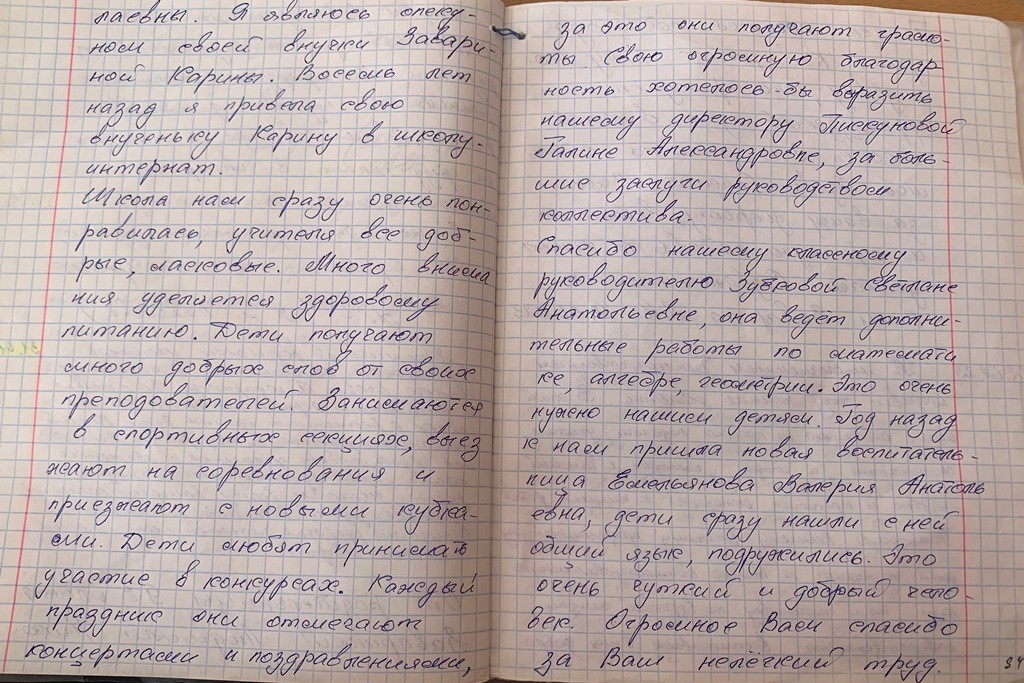 лаевны. Я являюсь опеку-
ном своей внучки Завари-
ной Карины. Восемь лет
назад я привела свою
внученьку Карину в школу-
интернат.
Школа нам сразу очень пон-
равилась, учителя все доб-
рые, ласковые. Много внима
ния уделяется здоровому
питанию. Дети получают
много добрых слов от своих
преподователей. Занимаются
в спортивных секциях, выез
жают на соревнования и
приезжают с новыми кубка-
ми. Дети любят принимать
участие в конкурсах. Каждый
праздник они отмечают
концертами и поздравлениями,
за это они получают грамо-
ты. Свою огромную благодар-
ность хотелось-бы выразить
нашему директору Пискуновой
Галине Александровне, за боль-
шие заслуги руководством
коллектива.
Спасибо нашему классному
руководителю Зубковой Светлане
Анатольевне, она ведёт дополни-
тельные работы по математи
ке, алгебре, геометрии. Это очень
нужно нашим детям. Год назад
к нам пришла новая воспитатель-
ница Емельянова Валерия Анатоль
евна, дети сразу нашли с ней
общий язык, подружились. Это
очень чуткий и добрый чело-
век. Огромное Вам спасибо
за Ваш нелёгкий труд.